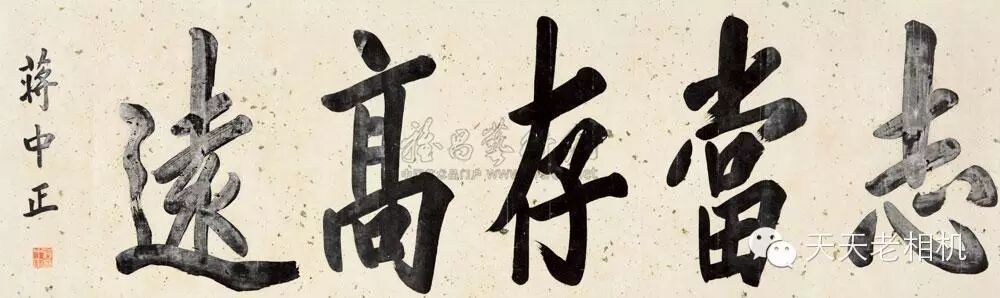 志當存高遠
蔣中正
天天老相机